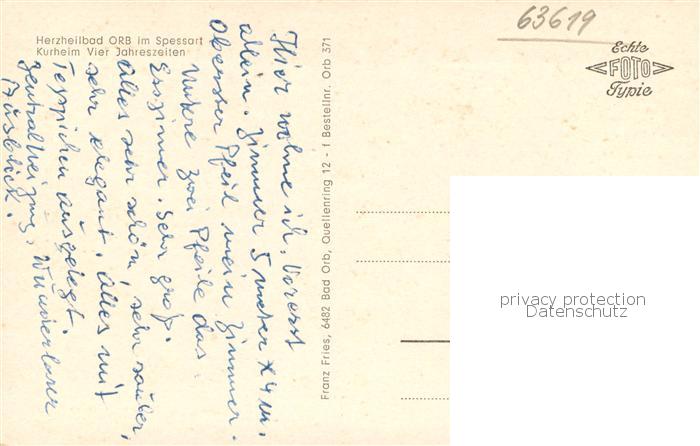 63619
Herzheilbad ORB im Spessart
Kurheim Vier Jahreszeiten
Echte
FOTO
Typie
Hier wohne ich. Vorerst
allein. Zimmer 5 meter x 4 m.
Oberster Pfeil mein Zimmer.
Untere zwei Pfeile das
Esszimmer. Sehr groß.
Alles sehr schön, sehr sauber,
sehr elegant. Alles mit
Teppichen ausgelegt.
Zentralheizung. Wunderbarer
Ausblick.
Franz Fries, 6482 Bad Orb, Quellenring 12 - f Bestellnr. Orb 371
privacy protection
Datenschutz